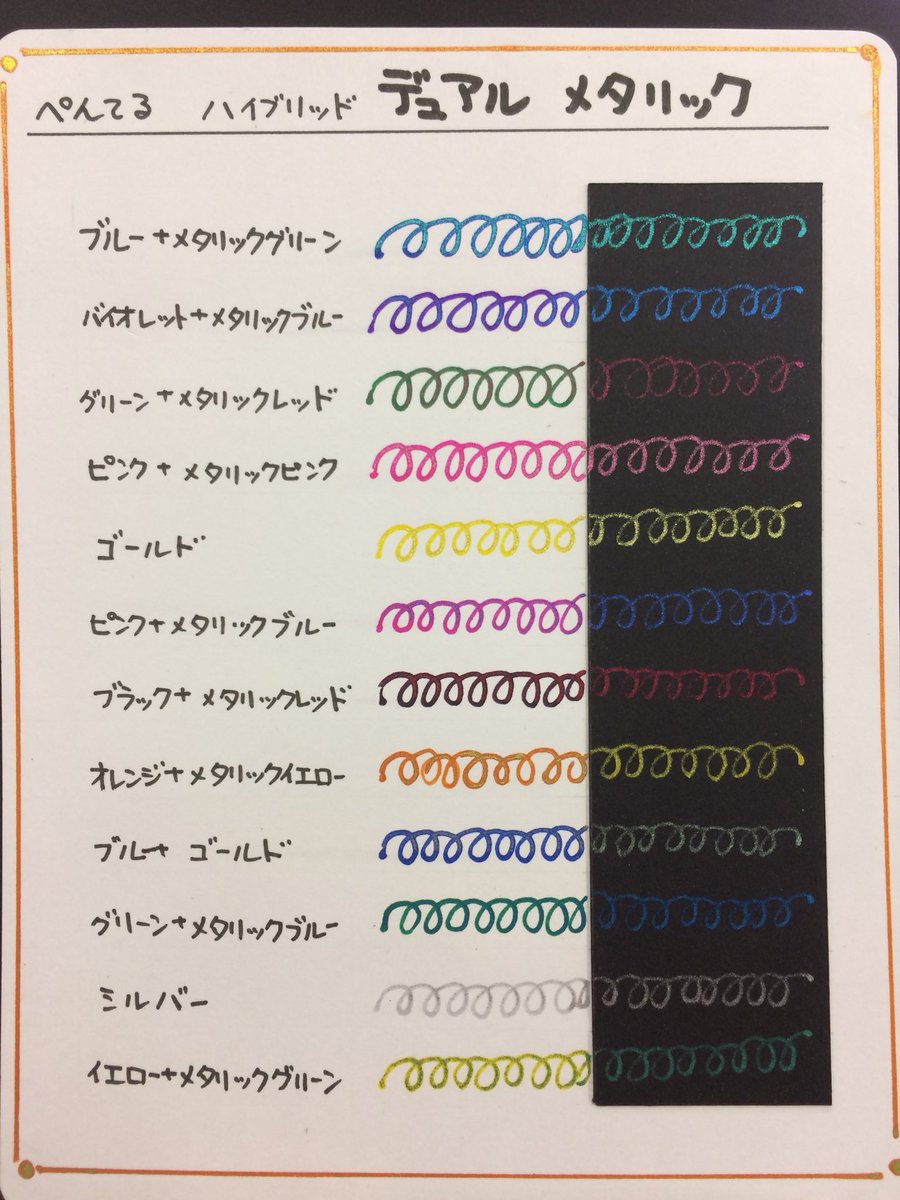 ぺんてる ハイブリッド デュアル メタリック
ブルー+メタリックグリーン
バイオレット+メタリックブルー
グリーン+メタリックレッド
ピンク+メタリックピンク
ゴールド
ピンク+メタリックブルー
ブラック+メタリックレッド
オレンジ+メタリックイエロー
ブルー+ゴールド
グリーン+メタリックブルー
シルバー
イエロー+メタリックグリーン